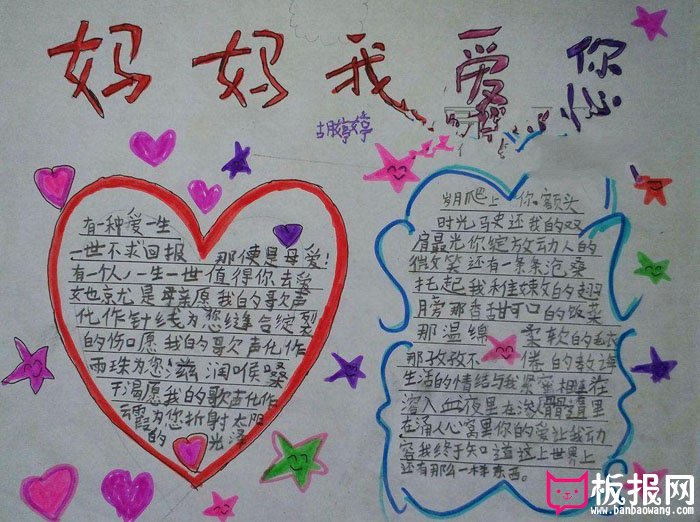 妈妈我爱您
胡婷婷
有一种爱一生
一世不求回报 那便是母爱!
有一个人一生一世值得你去爱
她也就是母亲愿我的歌声
化作针线为您缝合绽裂
的伤口愿我的歌声化作
雨珠为您滋润喉嗓
干渴愿我的歌声化作
云霞为您折射太阳
的光泽
岁月爬上你额头
时光 还我的双
肩最光你绽放动人的
微笑还有一条条沧桑
托起我稚嫩的翅
膀那香甜可口的饭菜
那温绵 柔软的毛衣
那孜孜不倦的教诲
生活的情结与我紧密相连
溶入血液里在 骨髓里
在涌入心窝里你的爱让我动
容我终于知道这上世界上
还有那么一样东西。
板报网
www.banbaowang.com